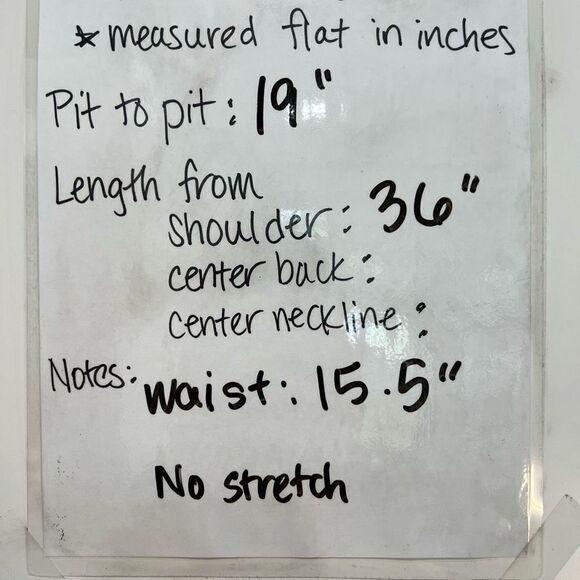 * measured flat in inches
Pit to pit: 19"
Length from
shoulder: 36"
center back:
center neckline:
Notes: waist: 15.5"
No stretch